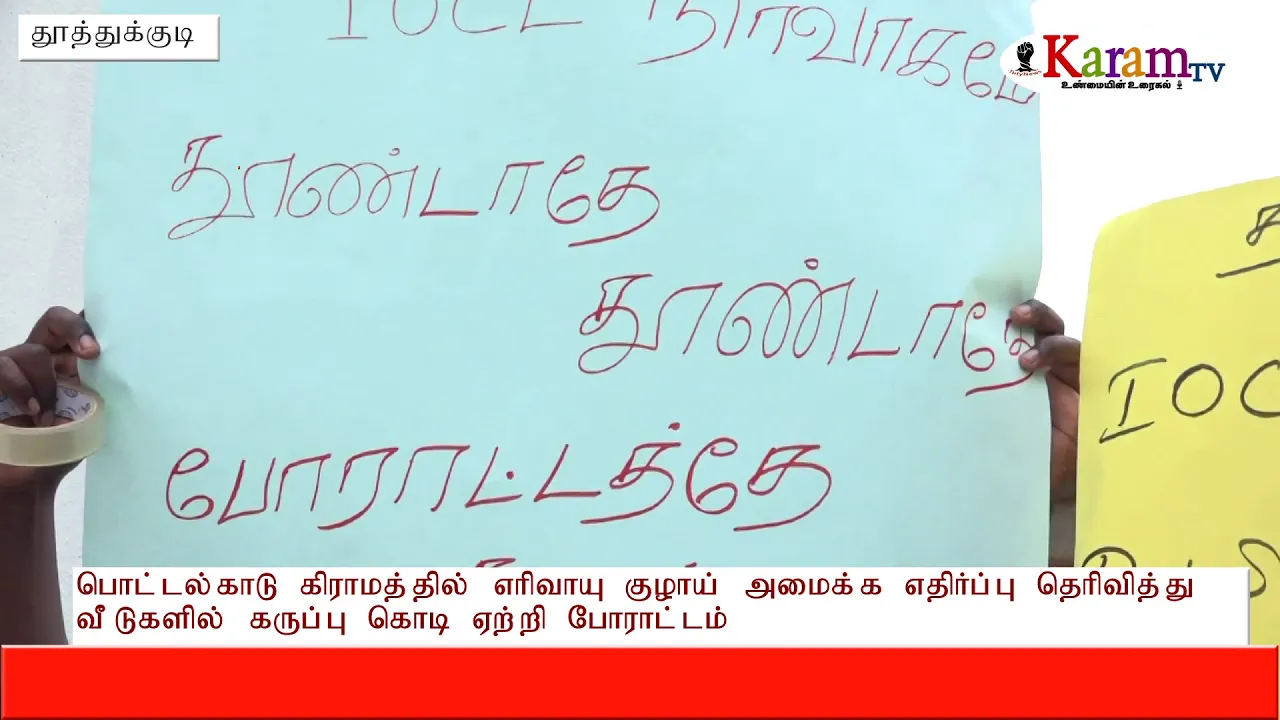 தூத்துக்குடி
Karam TV
உண்மையின் உரைகல்
IOCL நிர்வாகமே
தூண்டாதே
தூண்டாதே
போராட்டத்தே
IOC
பொட்டல்காடு கிராமத்தில் எரிவாயு குழாய் அமைக்க எதிர்ப்பு தெரிவித்து
வீடுகளில் கருப்பு கொடி ஏற்றி போராட்டம்